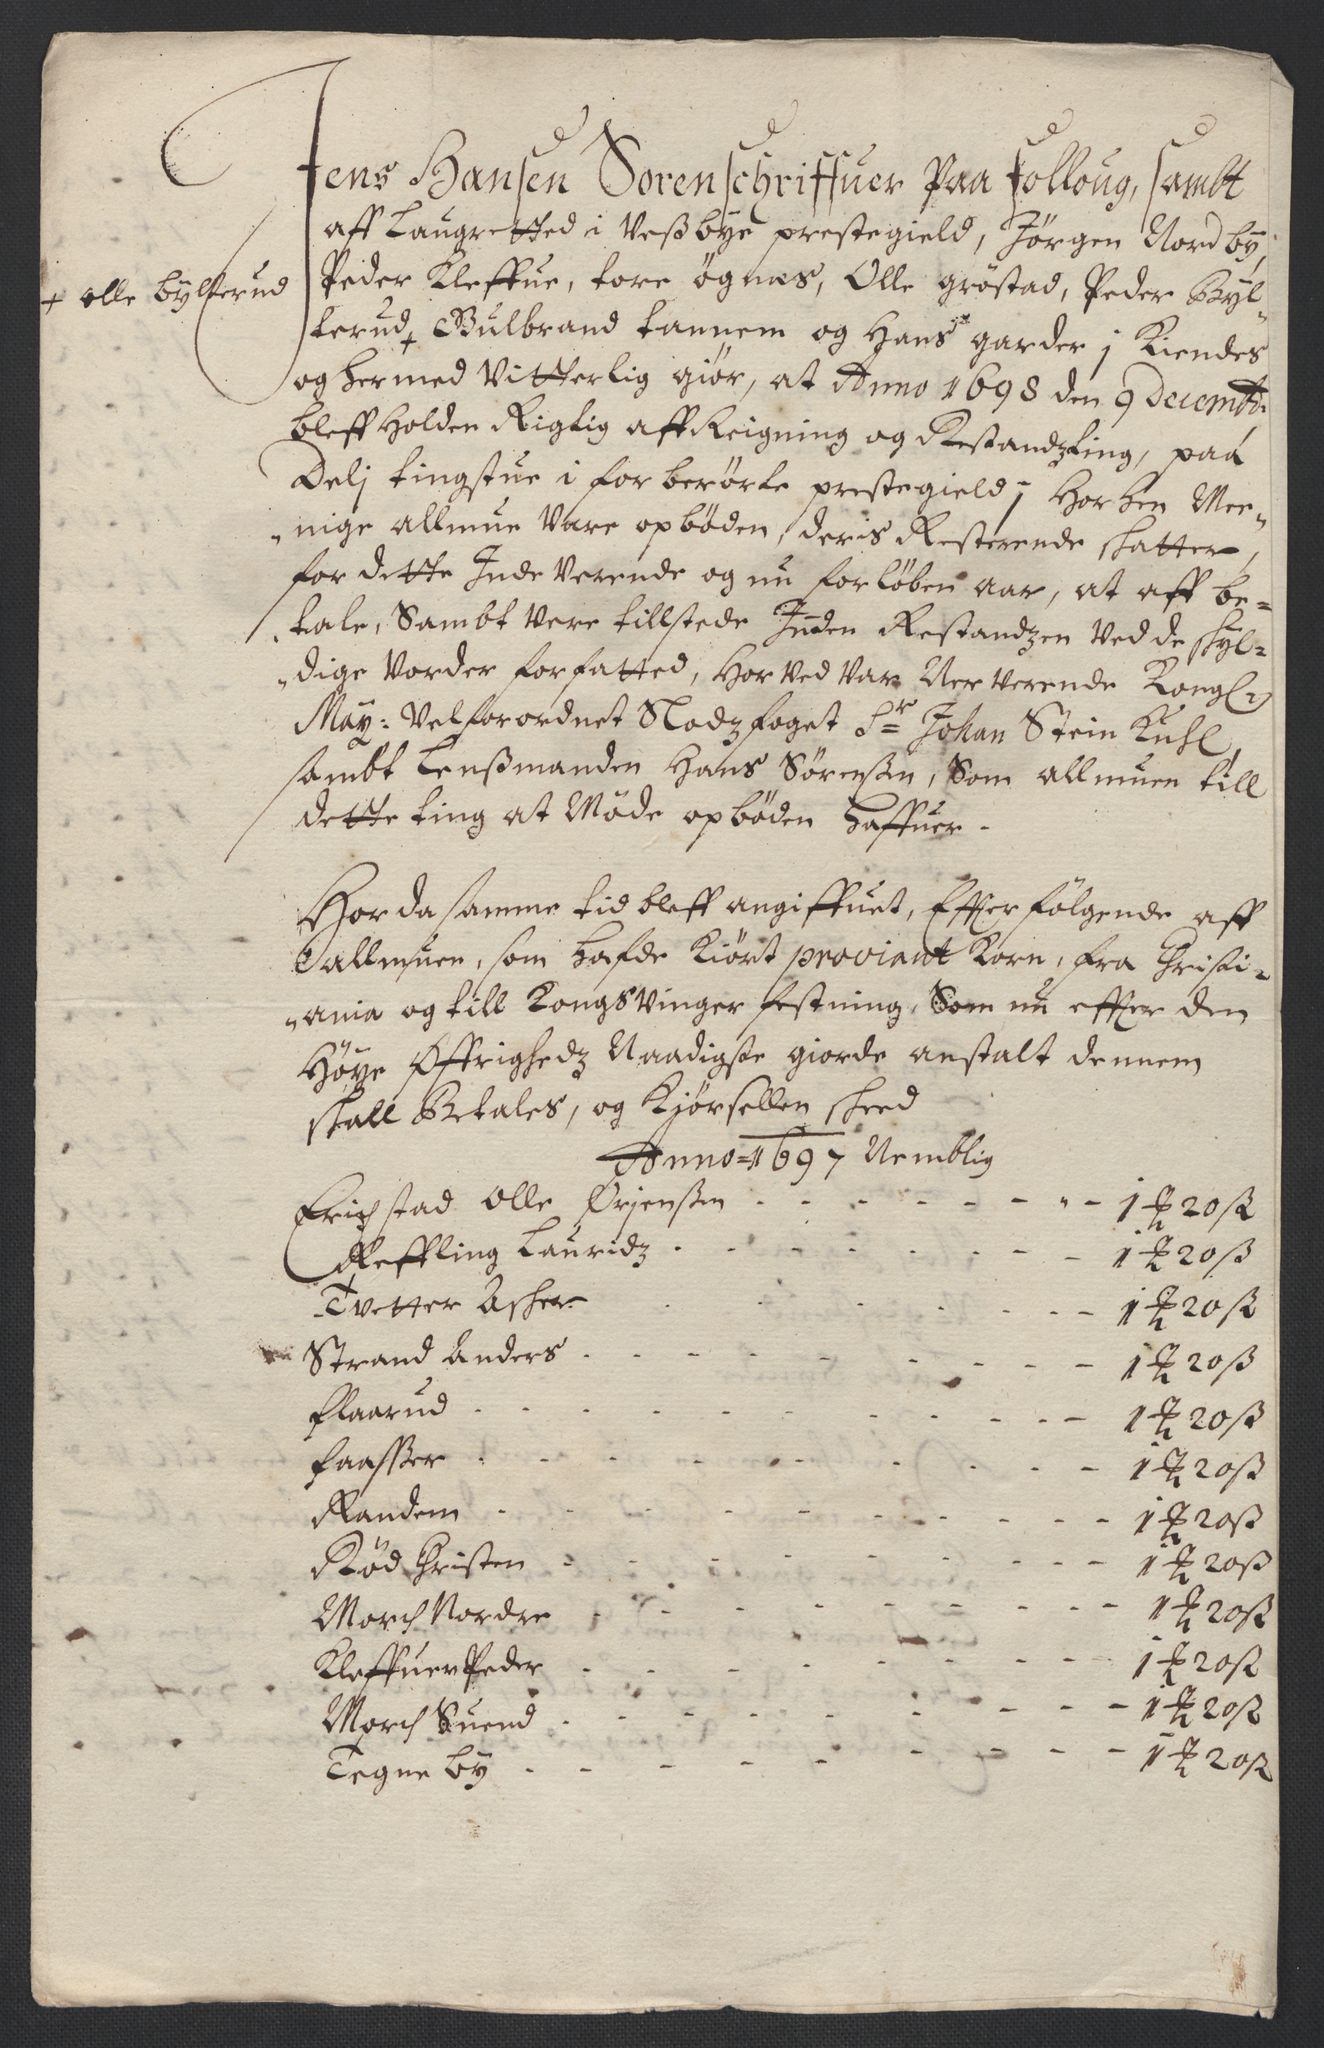 Jens Hansen Sorenschriffuer Paa folloug, sambt
aff Laugretted i Veßbye prestegield, Jørgen Nordby,
+ olle bylterud
Peder Kleffue, tore øgnes, Olle grøstad, Peder Byl-
terud + Gulbrand tannem og Hans garder j Kiendes
og hermed Vitterlig giør, at Anno 1698 den 9 Decembr:
bleff holden Rigtig aff Reigning og Restandzting, paa
Delj tingstue i forberørte prestegield, Hor hen Mee-
nige allmue Vare opbøden, deris Resterende skatter,
for dette Inde Verende og nu forløben aar, at aff be-
tale, Sambt vere tillstede Inden Restandzen Ved de skyl-
dige Vorder forfatted, hor ved Var Nerverende Kongl:
May: Velforordnet Slodzfoget Sr Johan Stein Kuhl,
sambt Lenßmanden Hans Sørenßen, Som allmuen till
dette ting at Møde opbøden haffuer.
Hor da samme tid bleff angiffuet, Effter følgende aff
allmuen, som hafde Kiørt proviant Korn, fra Christi-
ania og till Kongsvinger festning, Som nu effter den
Høye Øffrighedz Naadigste giorde anstalt dennem
skall Betales, og Kjørsellen skeed
Anno 1697 Nemblig
Erichstad olleØrjenßen - - - 1 20 ß
Reffling Lauridz - - - 1 20 ß
Tvetter Asher - - - 1 20 ß
Strand Anders - - - 1 20 ß
flaarud - - - 1 20 ß
faaßer - - - 1 20 ß
Randem - - - 1 20 ß
Rød Christen - - - 1 20 ß
Morch Nordre - - - 1 20 ß
Kleffuer Peder - - - 1 20 ß
Morch Suend - - - 1 20 ß
Tegneby - - - 1 20 ß